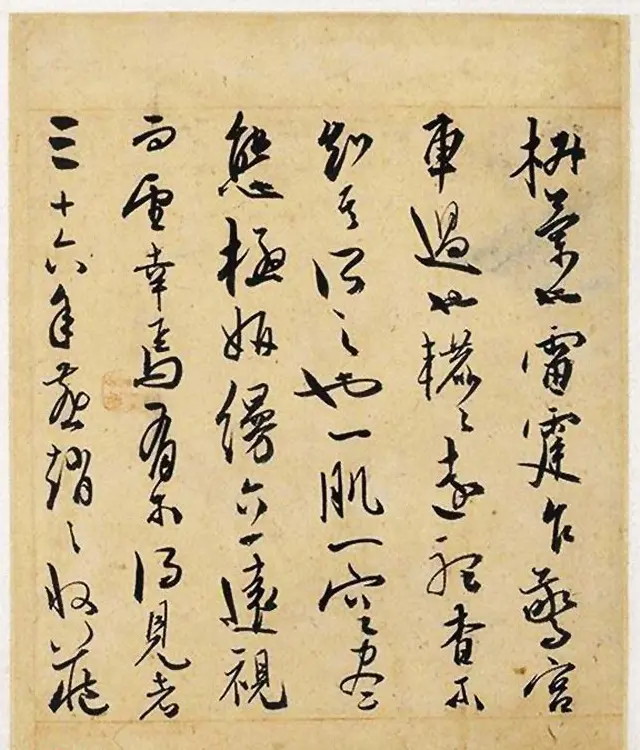 椒蘭也雷霆乍驚宮
車過也轆〻遠聽杳不
知其所之也一肌一容盡
態極妍縵立遠視
而望幸焉有不得見者
三十六年燕趙之收藏